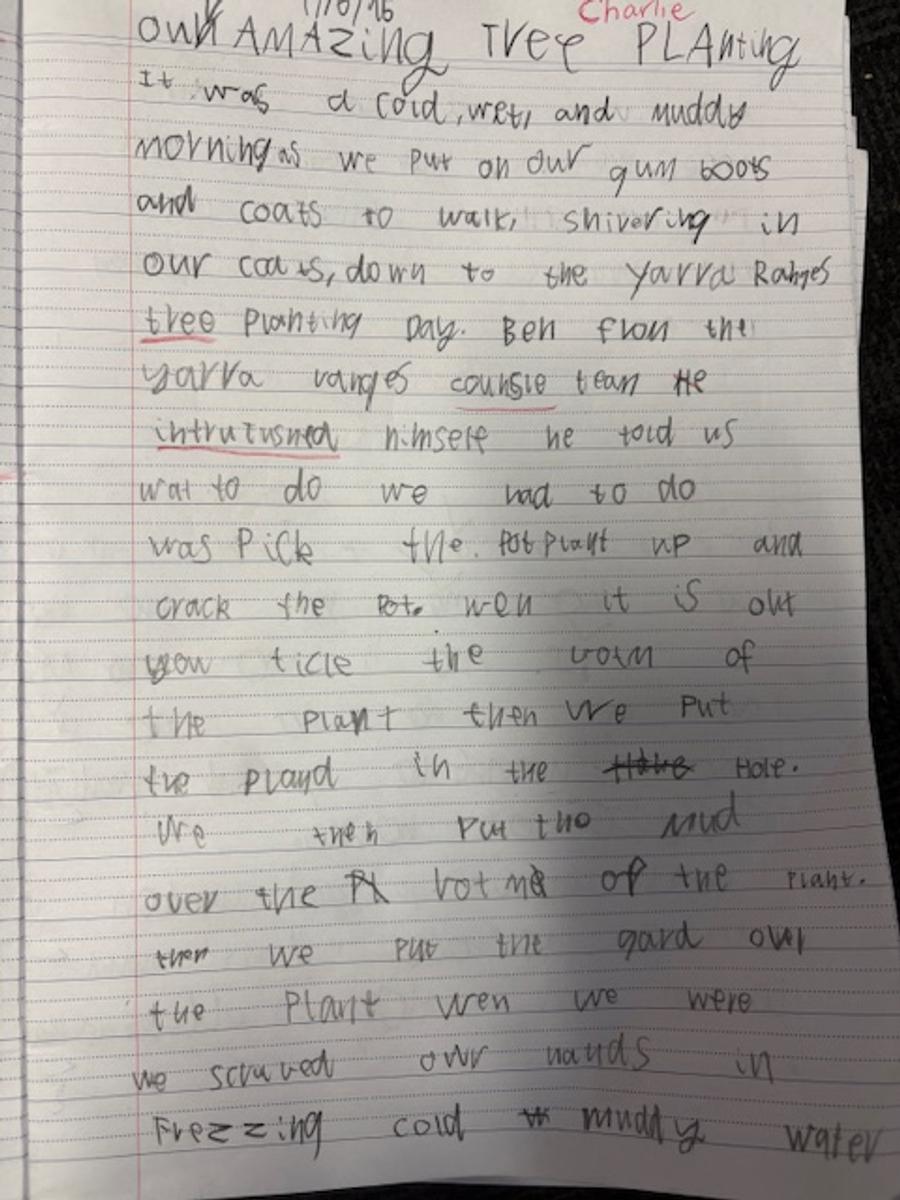 Charlie
OUR AMAZing Tree PLAnting
It was a cold, wet, and muddy
morning as we put on our gum boots
and coats to walk, shivering in
our coats, down to the Yarra Ranges
tree planting Day. Ben from the
yarra ranges counsle team He
intrutusned himself he told us
wat to do we had to do
was Pick the pot plant up and
crack the Pot. wen it is out
you ticle the botm of
the plant then we put
the pland in the Hole.
We then put the mud
over the botme of the plant.
then we put the gard over
the Plant wen we were
we scrubed our hands in
Frezzing cold muddy water